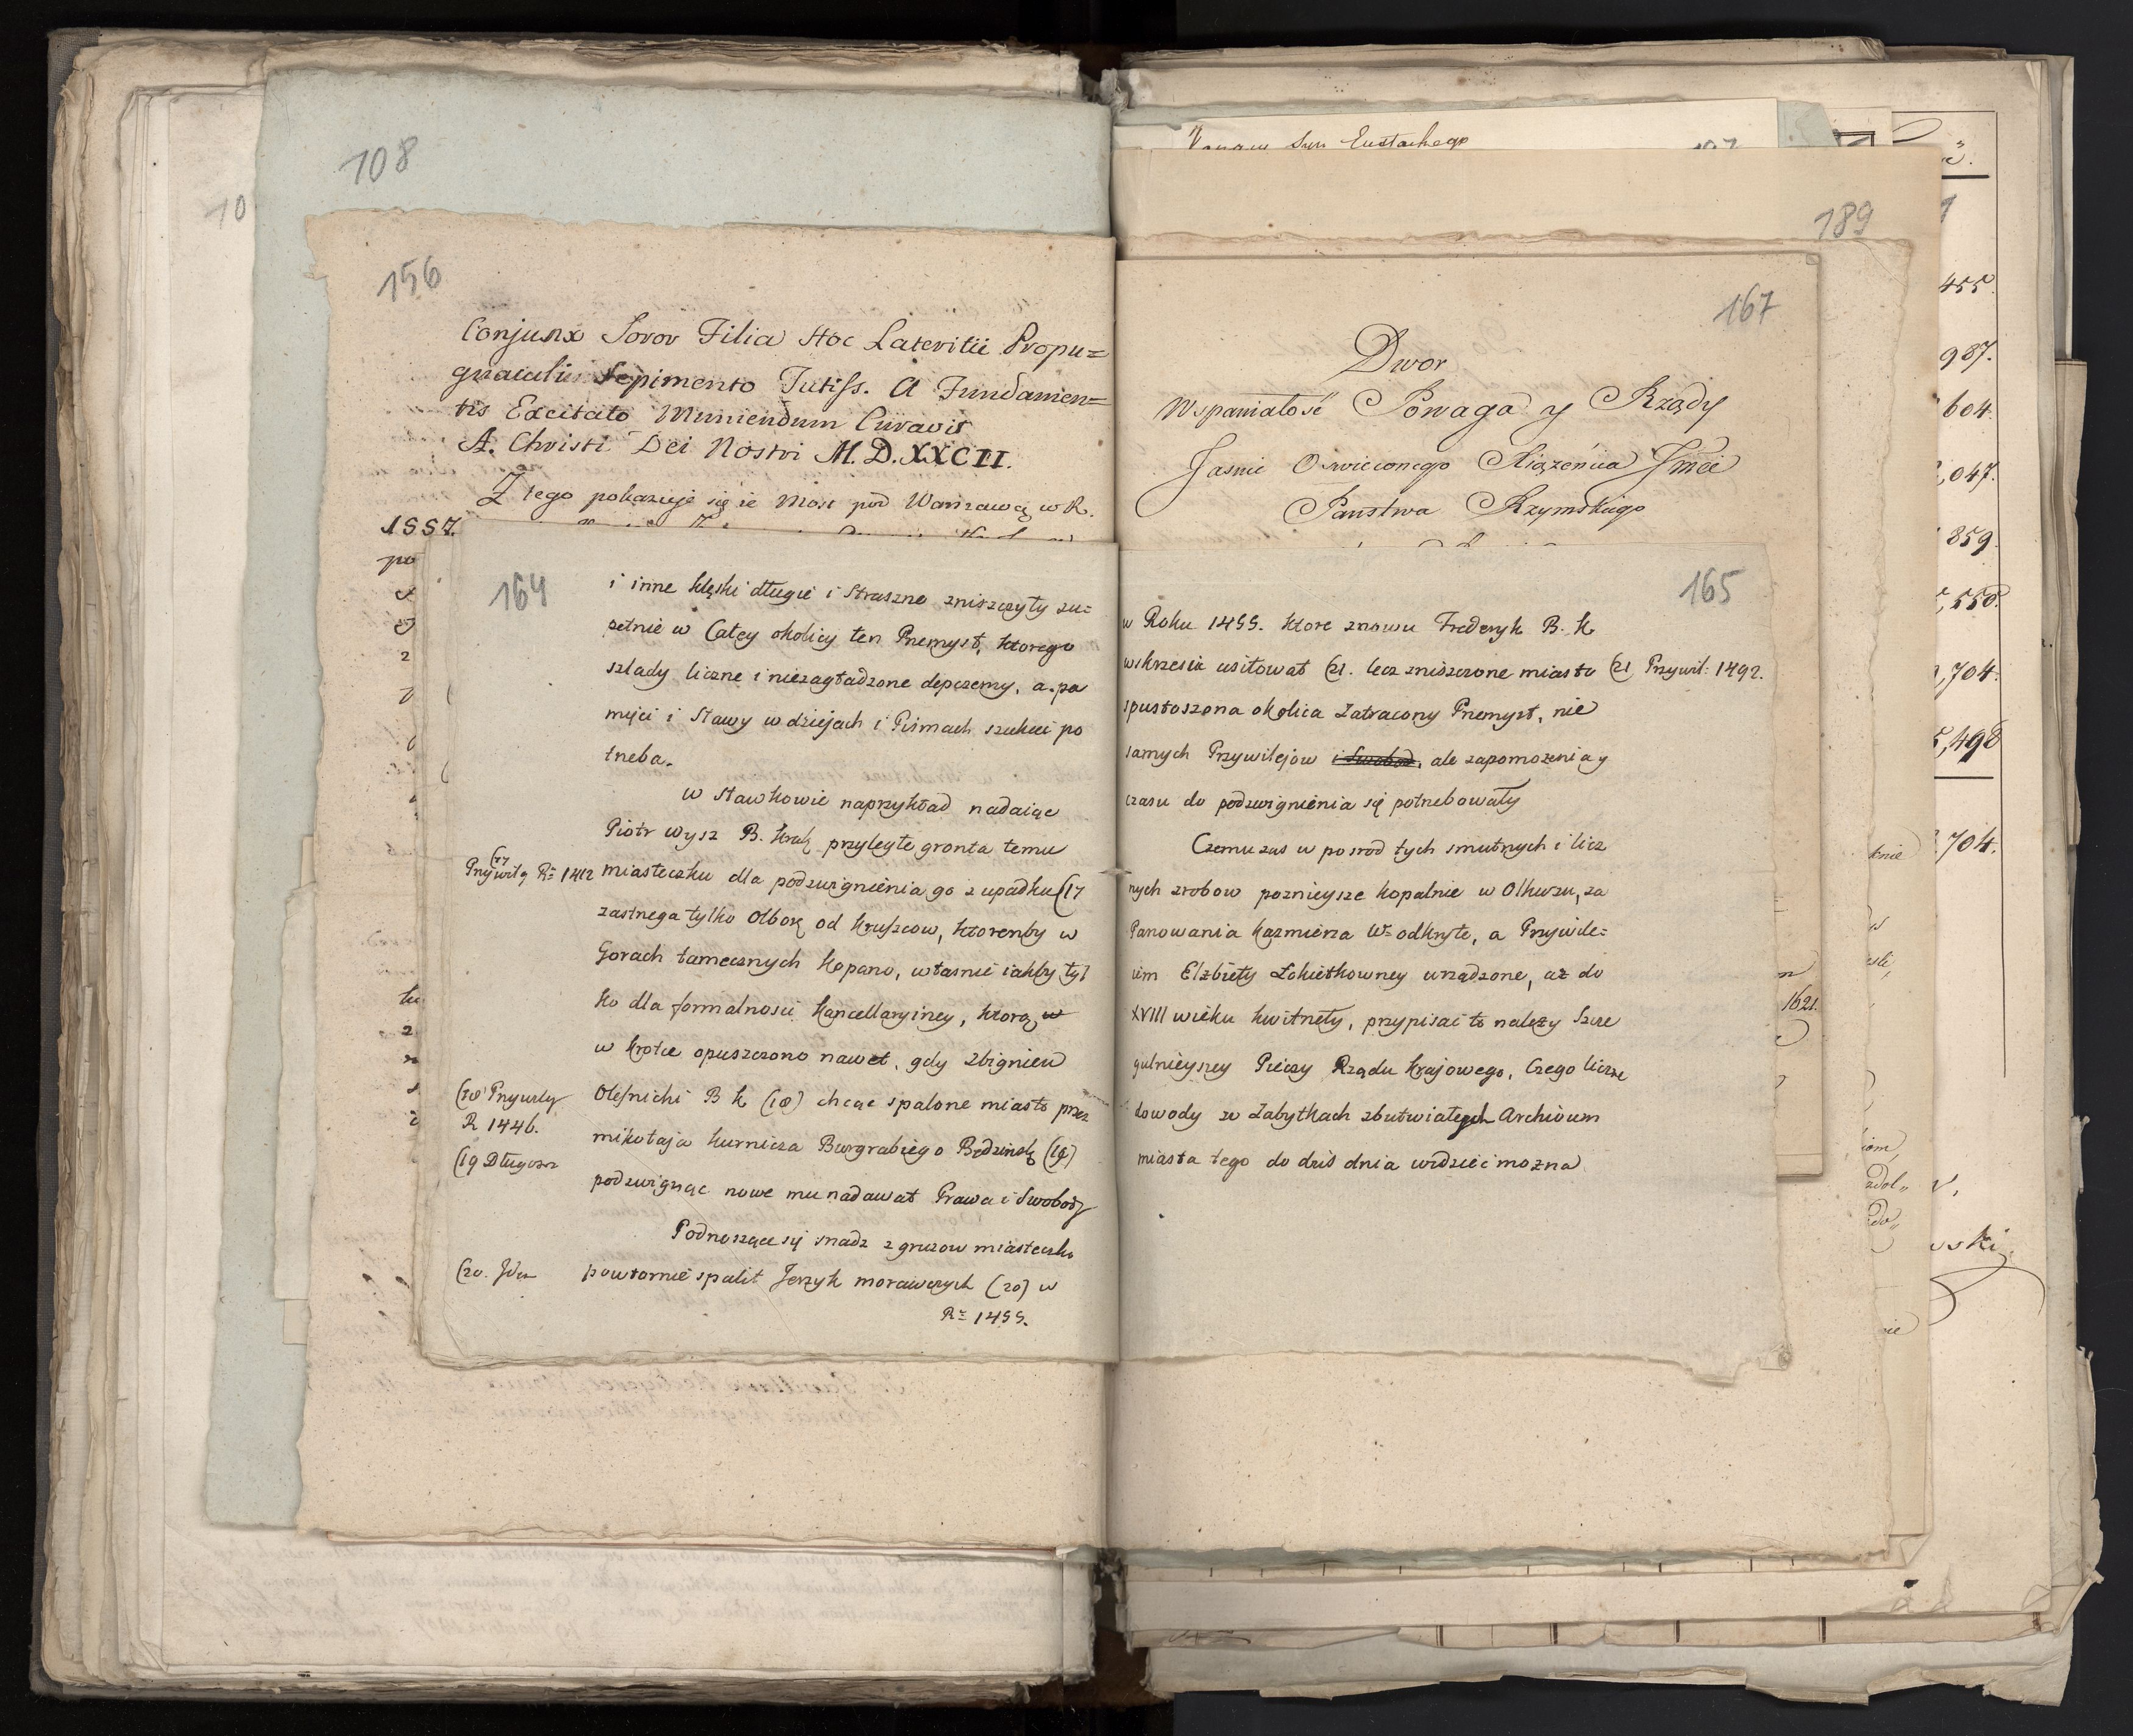 108
10
156
Conjunx Soror Filia Hoc Lateritii Propu=
gnaculi Sepimento Tutiss. A Fundamen=
tis Excitato Muniendum Curavit
A. Christi Dei Nostri M.D.XXCII.
Z tego pokazuje się że Most pod Warszawą w R.
1557.
po
164
i inne klęski długie i straszne zniszczyły zu=
pełnie w Całey okolicy ten Przemysł, ktorego
szlady liczne i niezagładzone depczemy, a pa
męci i Sławy w dziejach i Pismach szukać po
trzeba.
w Sławkowie naprzykład nadaiąc
Piotr wysz B. Krak przyległe gronta temu
miasteczku dla podzwignienia go z upadku (17
(17
Przywilg Rº 1412
zastrzega tylko Olborę od Kruszcow, ktorenby w
Gorach tamecznych Kopano, własnie iakby tyl
ko dla formalnosci Kancellaryiney, ktorą w
w krotce opuszczono nawet, gdy Zbigniew
Olesnicki B K (18) chcąc spalone miasto przez
(18 Przywily
R 1446.
mikołaja Kurnicza Burgrabiego Będzinsk (19)
(19 Długosz
podzwignąc nowe mu nadawał Prawa i Swobody
Podnoszące się snadz z gruzow miasteczko
powtornie spalił Jerzyk morawczyk (20) w
(20. Idem
Rº 1455.
Eustachego
189
167
Dwor
Wspaniałość Powaga y Rządy
Jasnie Oswieconego Xiążęcia Jmci
Panstwa Rzymskiego
165
w Roku 1455. ktore znowu Frederyk B. K
wskrzesić usitował (21. lecz zniszczone miasto (21 Przywil: 1492.
spustoszona okolica zatracony Przemysł, nie
samych Przywilejow i Swobod, ale zapomożenia y
czasu do podzwignienia się potrzebowały
Czemu zas w posrod tych smutnych i licz
nych zrobow poznieysze kopalnie w Olkuszu, za
Panowania Kazmierza Wº odkryte, a Przywile=
iem Elzbiety Łokietkowney urządzone, aż do
XVIII wieku kwitnęły, przypisać to należy Szcze
gulnieyszey Pieczy Rządu Krajowego, Czego liczne
dowody w Zabytkach zbutwiałych Archivum
miasta tego do dziś dnia widzieć można
455.
987.
604.
,047.
859.
,550.
,704.
5,498
704.
1621.